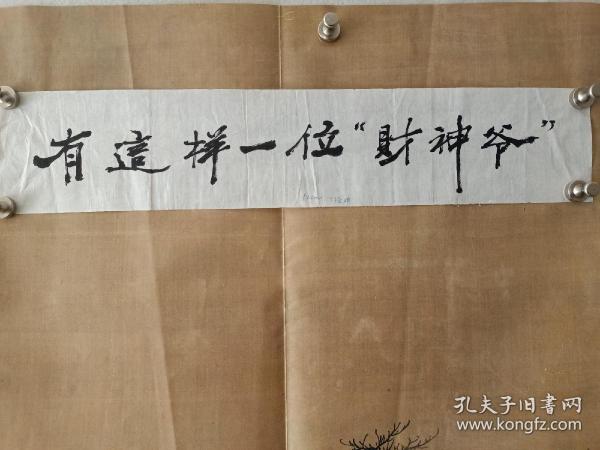 有這样一位“財神爷”
孔夫子旧書网
www.kongfz.com